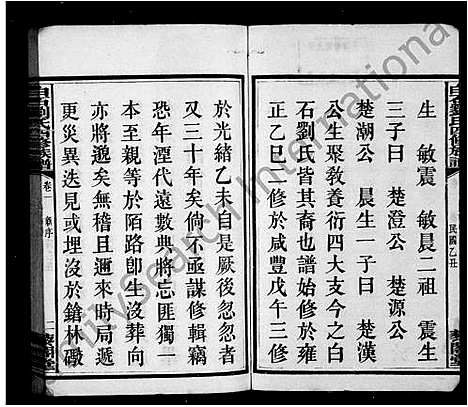 生　敏震　敏晨二祖　震生
三子曰　楚澄公　楚源公
楚潮公　晨生一子曰　楚漢
公生聚敎養衍四大支今之白
石劉氏皆其裔也譜始修於雍
正乙巳一修於咸豐戊午三修
民國乙丑
於光緒乙未自是厥後忽忽者
又三十年矣倘不亟謀修輯竊
恐年湮代遠數典將忘匪獨一
本至親等於陌路卽生沒葬向
亦將邈矣無稽且邇來時局遞
更災異迭見或埋沒於鎗林礮
白石劉氏四修族譜
卷一
FamilySearch International